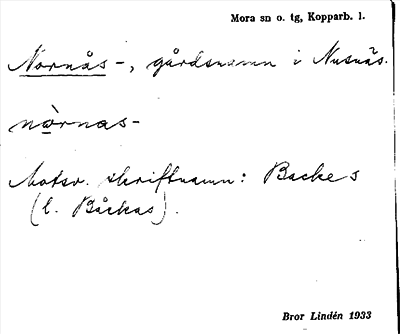 Mora sn o. tg, Kopparb. l.
Nornås-, gårdsnamn i Nusnäs.
nò̱rnas-
Motsv. skriftnamn: Backes
(l. Båckas).
Bror Lindén 1933